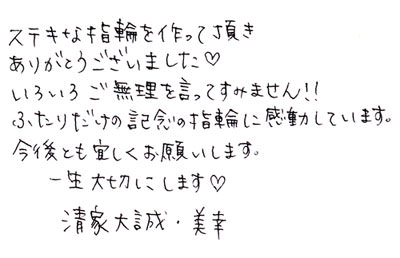 ステキな指輪を作って頂き
ありがとうございました♡
いろいろご無理を言ってすみません!!
ふたりだけの記念の指輪に感動しています。
今後とも宜しくお願いします。
一生大切にします♡
清家大誠・美幸